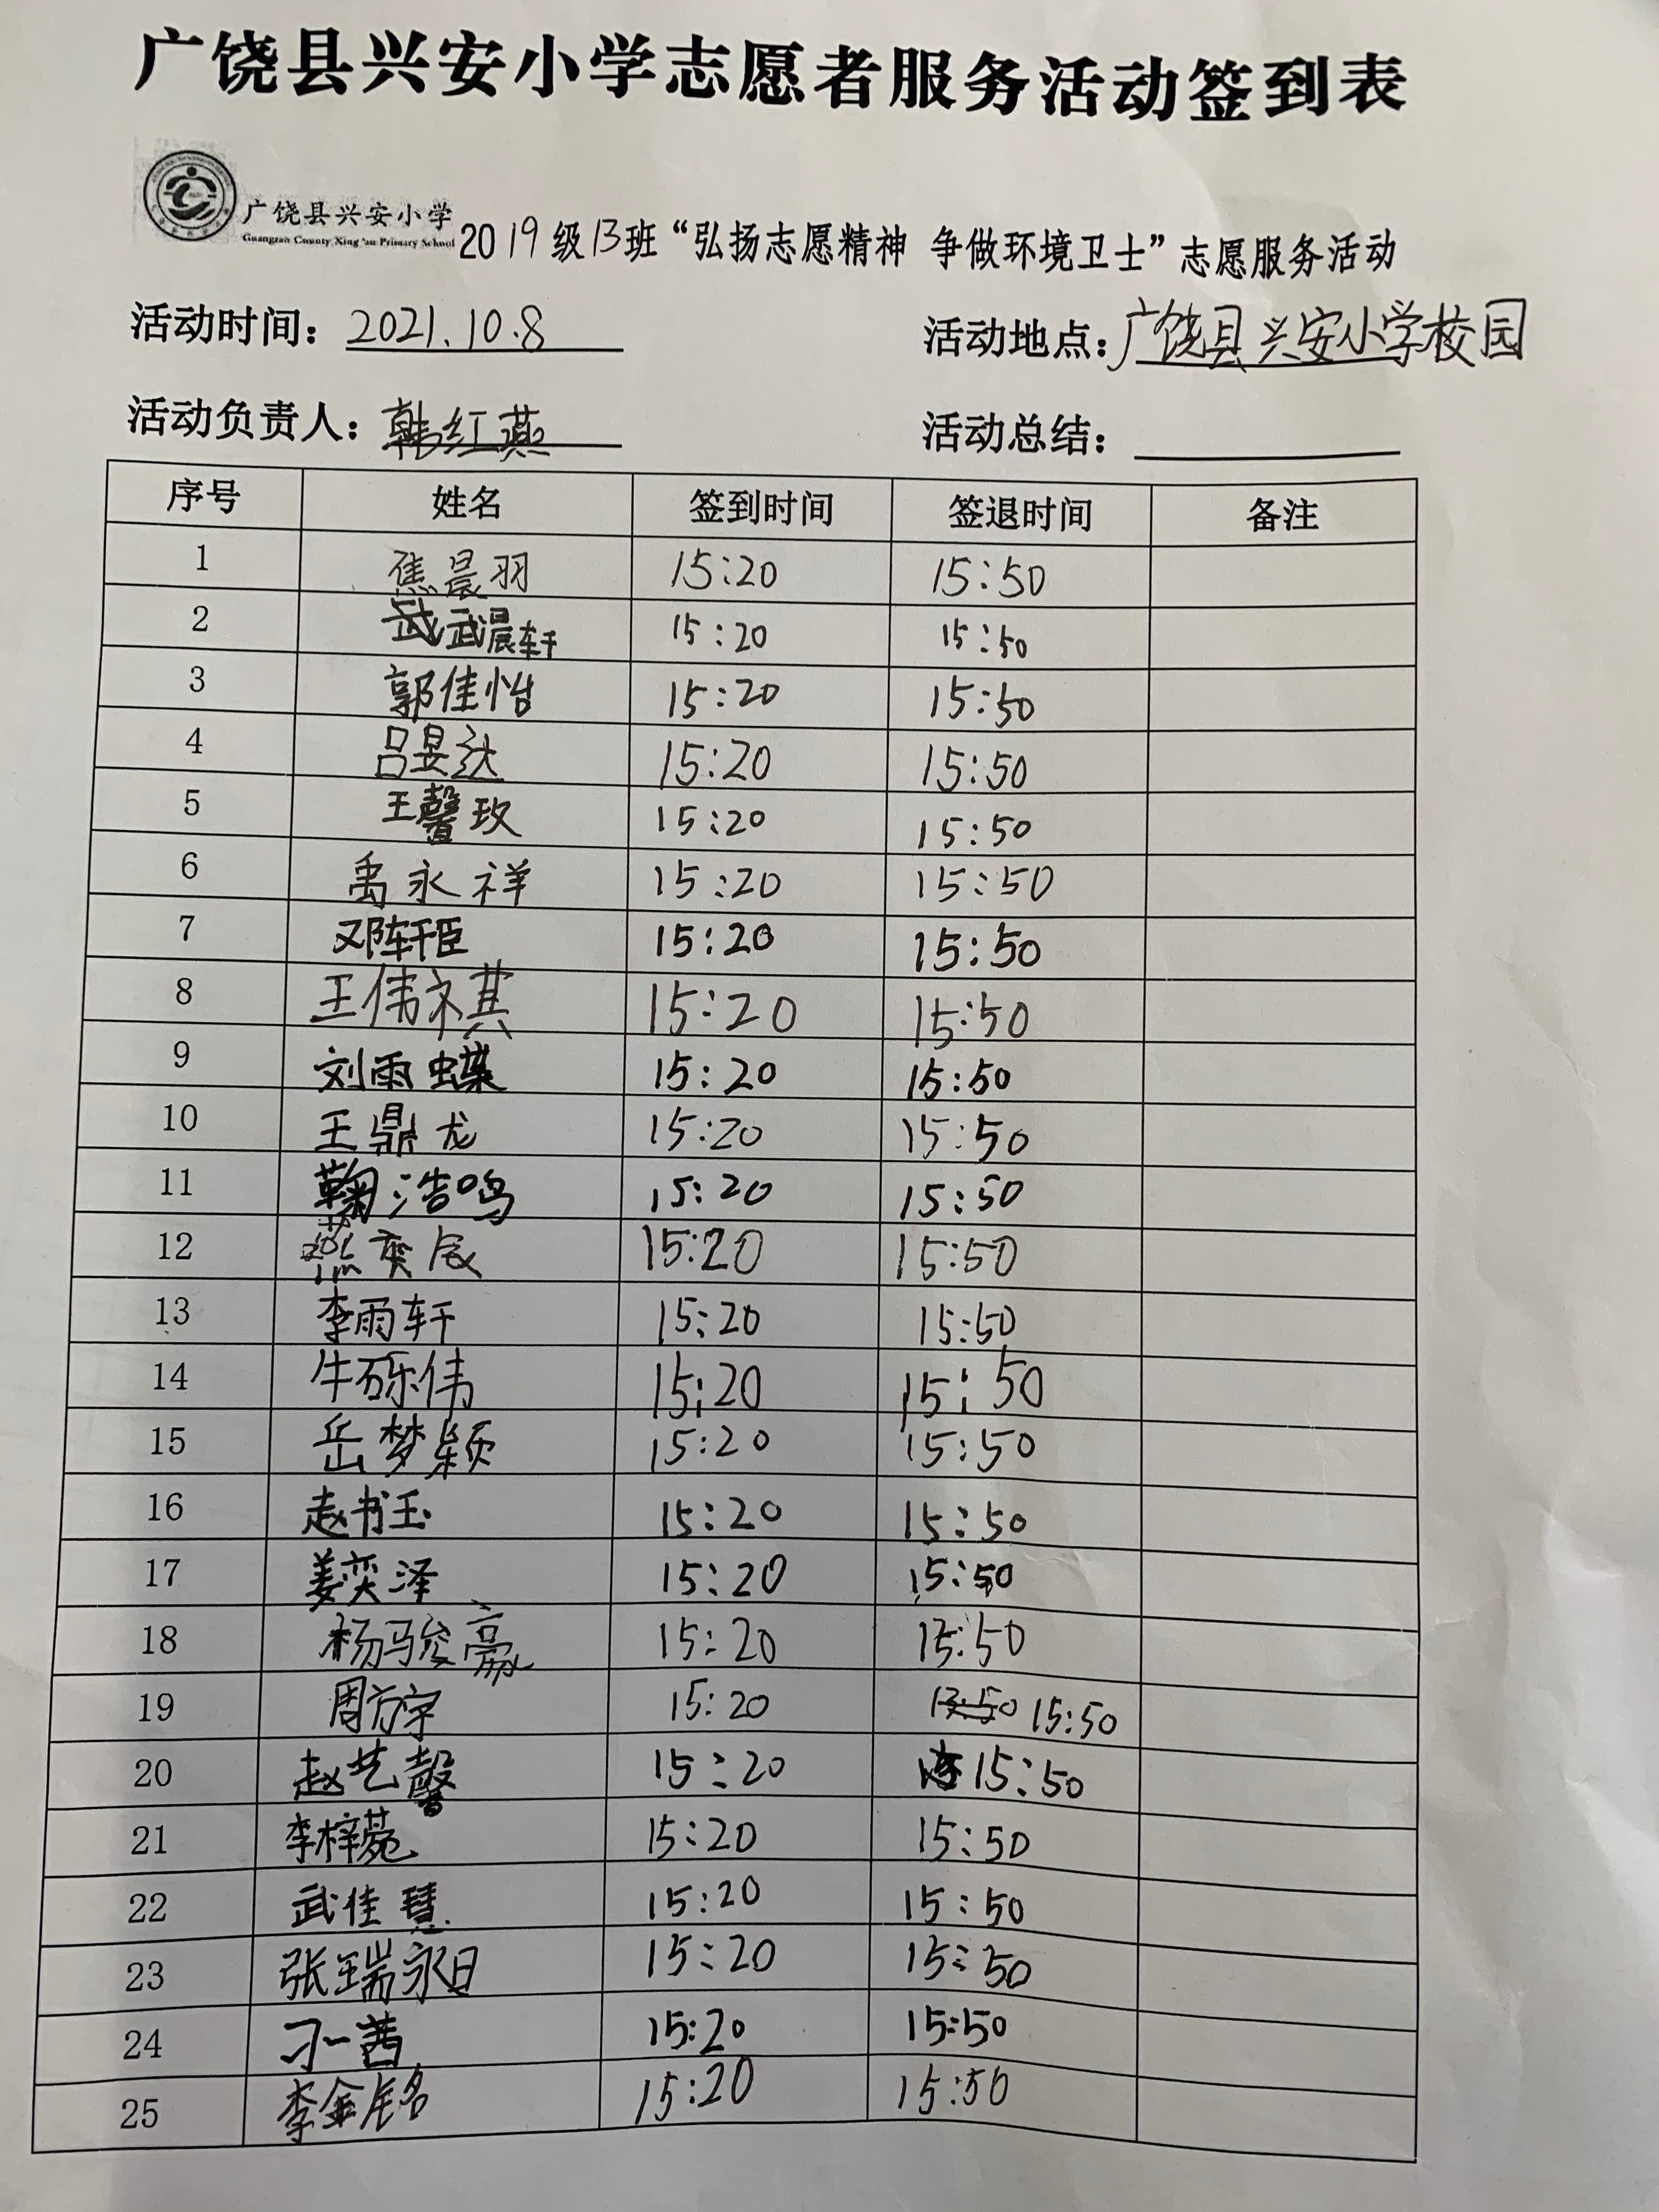 广饶县兴安小学志愿者服务活动签到表
广饶县兴安小学
Guangrao County Xing'an Primary School
2019级13班“弘扬志愿精神 争做环境卫士”志愿服务活动
活动时间：2021.10.8 活动地点：广饶县兴安小学校园
活动负责人：韩红燕 活动总结：
序号 姓名 签到时间 签退时间 备注
1 焦晨羽 15:20 15:50
2 武晨轩 15:20 15:50
3 郭佳怡 15:20 15:50
4 吕昱 15:20 15:50
5 王馨玫 15:20 15:50
6 禹永祥 15:20 15:50
7 邓轩臣 15:20 15:50
8 王伟祺 15:20 15:50
9 刘雨蝶 15:20 15:50
10 王鼎龙 15:20 15:50
11 鞠浩鸣 15:20 15:50
12 燕奕辰 15:20 15:50
13 李雨轩 15:20 15:50
14 牛砾伟 15:20 15:50
15 岳梦颖 15:20 15:50
16 赵书玉 15:20 15:50
17 姜奕泽 15:20 15:50
18 杨骏豪 15:20 15:50
19 周方宇 15:20 15:50
20 赵艺馨 15:20 15:50
21 李梓菀 15:20 15:50
22 武佳慧 15:20 15:50
23 张瑞 15:20 15:50
24 刁一茜 15:20 15:50
25 李金铭 15:20 15:50